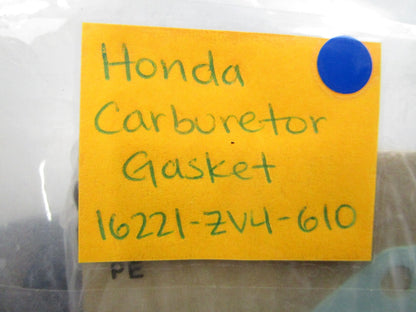 Honda
Carburetor
Gasket
16221-ZV4-610
PE